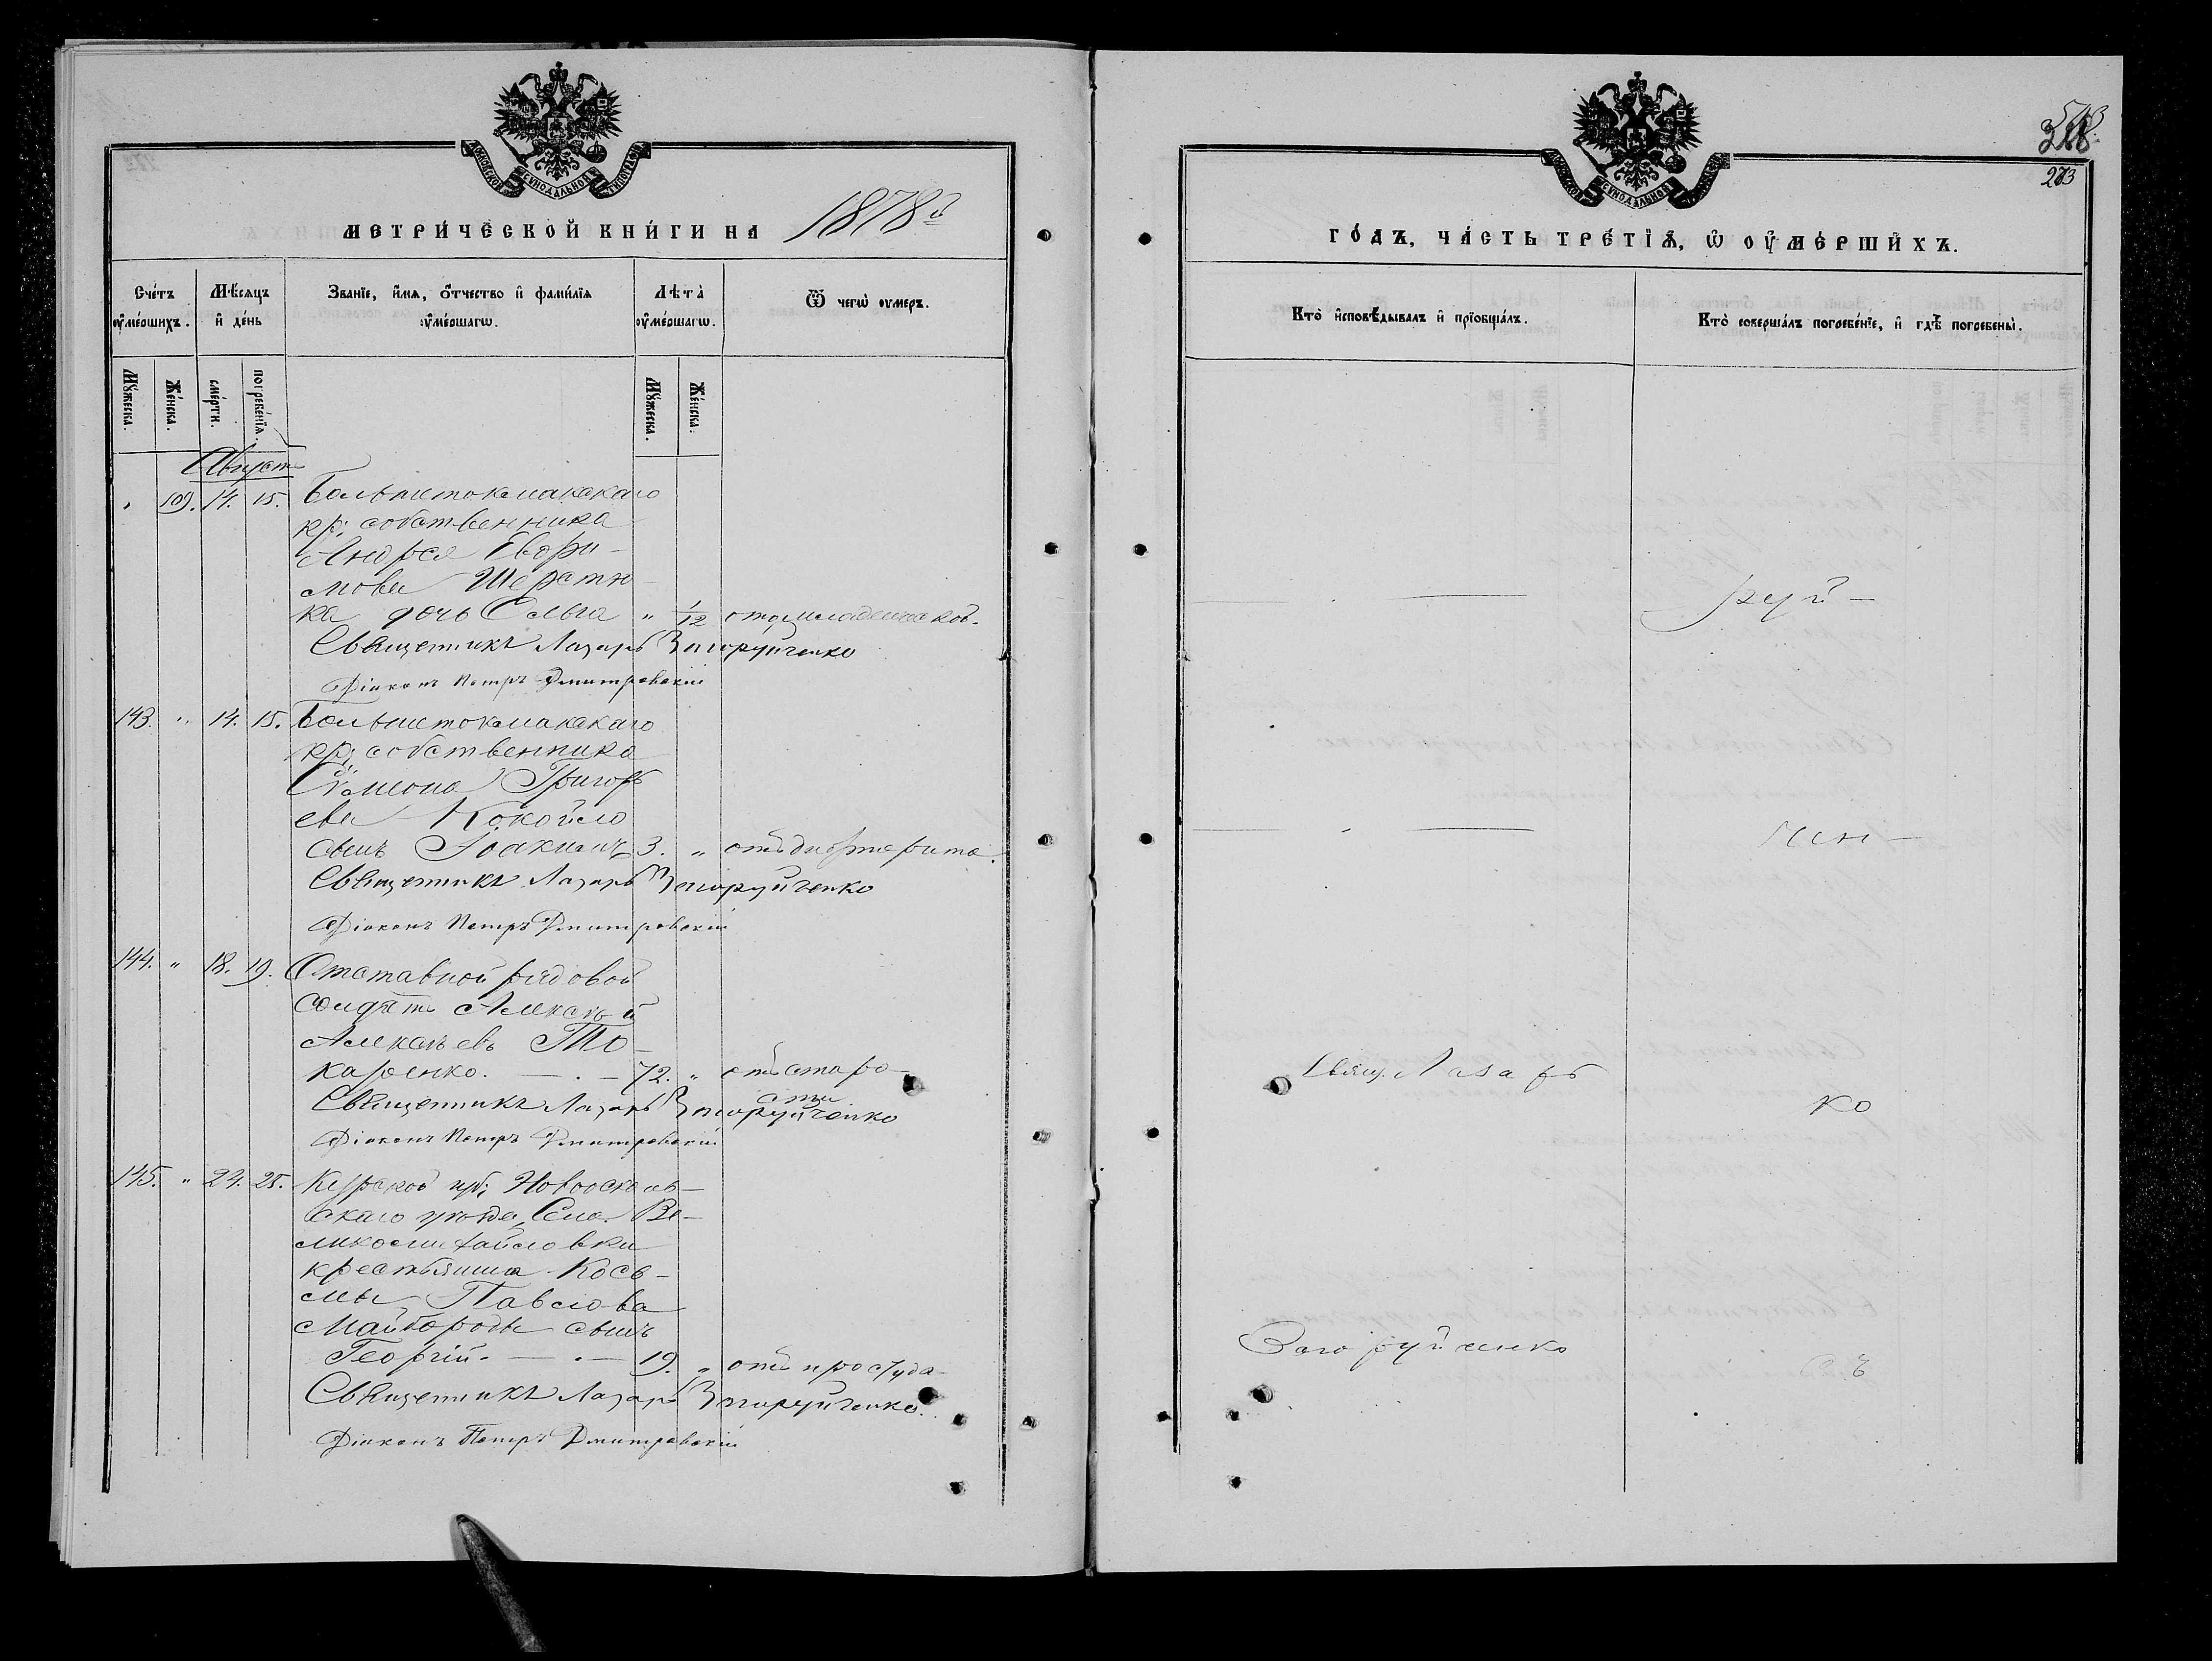 МОСКОВСКОЙ СѴНОДАЛЬНОЙ ТИПОГРАФІИ
МЕТРИ́ЧЕСКОЙ КНИ́ГИ НА 1878й
Сче́тъ ѹ҆ме́ршихъ.
Мѣ́сяцъ и҆ де́нь
Зва́нїе, и҆́мя, ѻ҆́тчество и҆ фами́лїя ѹ҆ме́ршагѡ.
Лѣ́та ѹ҆ме́ршагѡ.
Ѿ чегѡ̀ ѹ҆́меръ.
Мꙋ́жеска.
Же́нска.
сме́рти.
погребе́нїя.
Мꙋ́жеска.
Же́нска.
Августъ
109. 14. 15. Большетокмакскаго
кр; собственника
Андрея Евфи-
мова Шерстю-
ка дочь Ольга " 1/12 отъ младенческ.
Священникъ Лазарь Загоруйченко
Діаконъ Петръ Дмитровскій
143. " 14. 15. Большетокмакскаго
кр; собственника
Сѵмеона Григорь
ева Кокойло
сынъ Іоакимъ 3. " отъ дифтерита.
Священникъ Лазарь Загоруйченко
Діаконъ Петръ Дмитровскій
144. " 18. 19. Отставной рядовой
солдатъ Алексѣй
Алексѣевъ То-
каренко. — . — 72. " отъ старо-
сти
Священникъ Лазарь Загоруйченко
Діаконъ Петръ Дмитровскій
145. " 24. 25. Курской губ; Новооскол-
скаго уѣзда, Села Ве-
ликомихайловки
крестьянина Кось-
мы Павлова
Майбороды сынъ
Георгій. — . — 19. " отъ простуда-
Священникъ Лазарь Загоруйченко.
Діаконъ Петръ Дмитровскій
МОСКОВСКОЙ СѴНОДАЛЬНОЙ ТИПОГРАФІИ
273
ГО́ДЪ, ЧА́СТЬ ТРЕ́ТЇѦ, Ѡ҆ Ѹ҆МЕ́РШИХЪ.
Кто̀ и҆сповѣ́дывалъ и҆ прїѻбща́лъ.
Кто̀ соверша́лъ погребе́нїе, и҆ гдѣ̀ погребены̀.
— . — руй-
— . — чен-
Свящ. Лазарь
ко
Загоруйченко